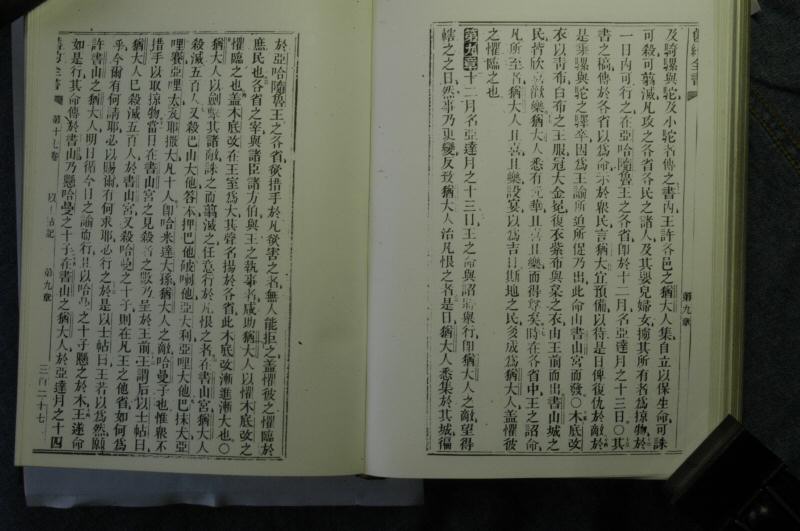 舊約全書
第九章
及騎騾與駝及小駝名傳之書內王許各邑之猶大人集自立以保生命可誅
可殺可翦滅凡攻之各省各民之諸人及其嬰兒婦女擄其所有者為掠物於
一日內可行之在亞哈隨魯王之各省卽於十二月名亞達月之十三日○其
書之稿傳於各省以為命示於眾民言猶大宜預備以待是日俾復仇於敵於
是乘騾與駝之驛卒因為王諭所迫所促乃出此命由書山宮而發○木底改
衣以青布白布之王服冠大金冕復衣紫布與枲之衣由王前而出書山城之
民皆欣喜歡樂猶大人悉有光華且喜且樂而得尊矣時在各省中王之詔命
凡所至者猶大人且喜且樂設宴以為吉日斯地之民多成為猶大人蓋懼彼
之懼臨之也
第九章十二月名亞達月之十三日王之命與詔將舉行卽猶大人之敵望得
轄之之日然事乃更變反致猶大人治凡恨之者是日猶大人悉集於其城徧
於亞哈隨魯王之各省欲措手於凡欲害之者無人能拒之蓋懼彼之懼臨於
庶民也各省之宰與諸臣諸方伯與王之執事者咸助猶大人以懼木底改之
懼臨之也蓋木底改在王室為大其聲名揚於各省此木底改漸進漸大也○
猶大人以劍擊其諸敵誅之而翦滅之任意行於凡恨之者在書山宮猶大人
殺滅五百人又殺巴山大他各本押巴他破喇他亞大利亞哩大他巴抹大亞
哩賽亞哩太瓦耶撒大凡十人卽哈米達大孫猶大人之敵哈曼子也惟眾不
措手以取掠物當日在書山宮之見殺者之數乃呈於王前王謂后以士帖曰
猶大人已殺滅五百人於書山宮又殺哈曼之十子則在凡王之他省如何為
乎今爾有何請耶必以賜爾有何求耶必行之於是以士帖曰王若以為然願
許書山之猶大人明日循今日之諭而行且以哈曼之十子懸之於木王遂命
如是行其命傳於書山乃懸哈曼之十子在書山之猶大人於亞達月之十四
第十七卷
以士帖記
第九章
三百二十七